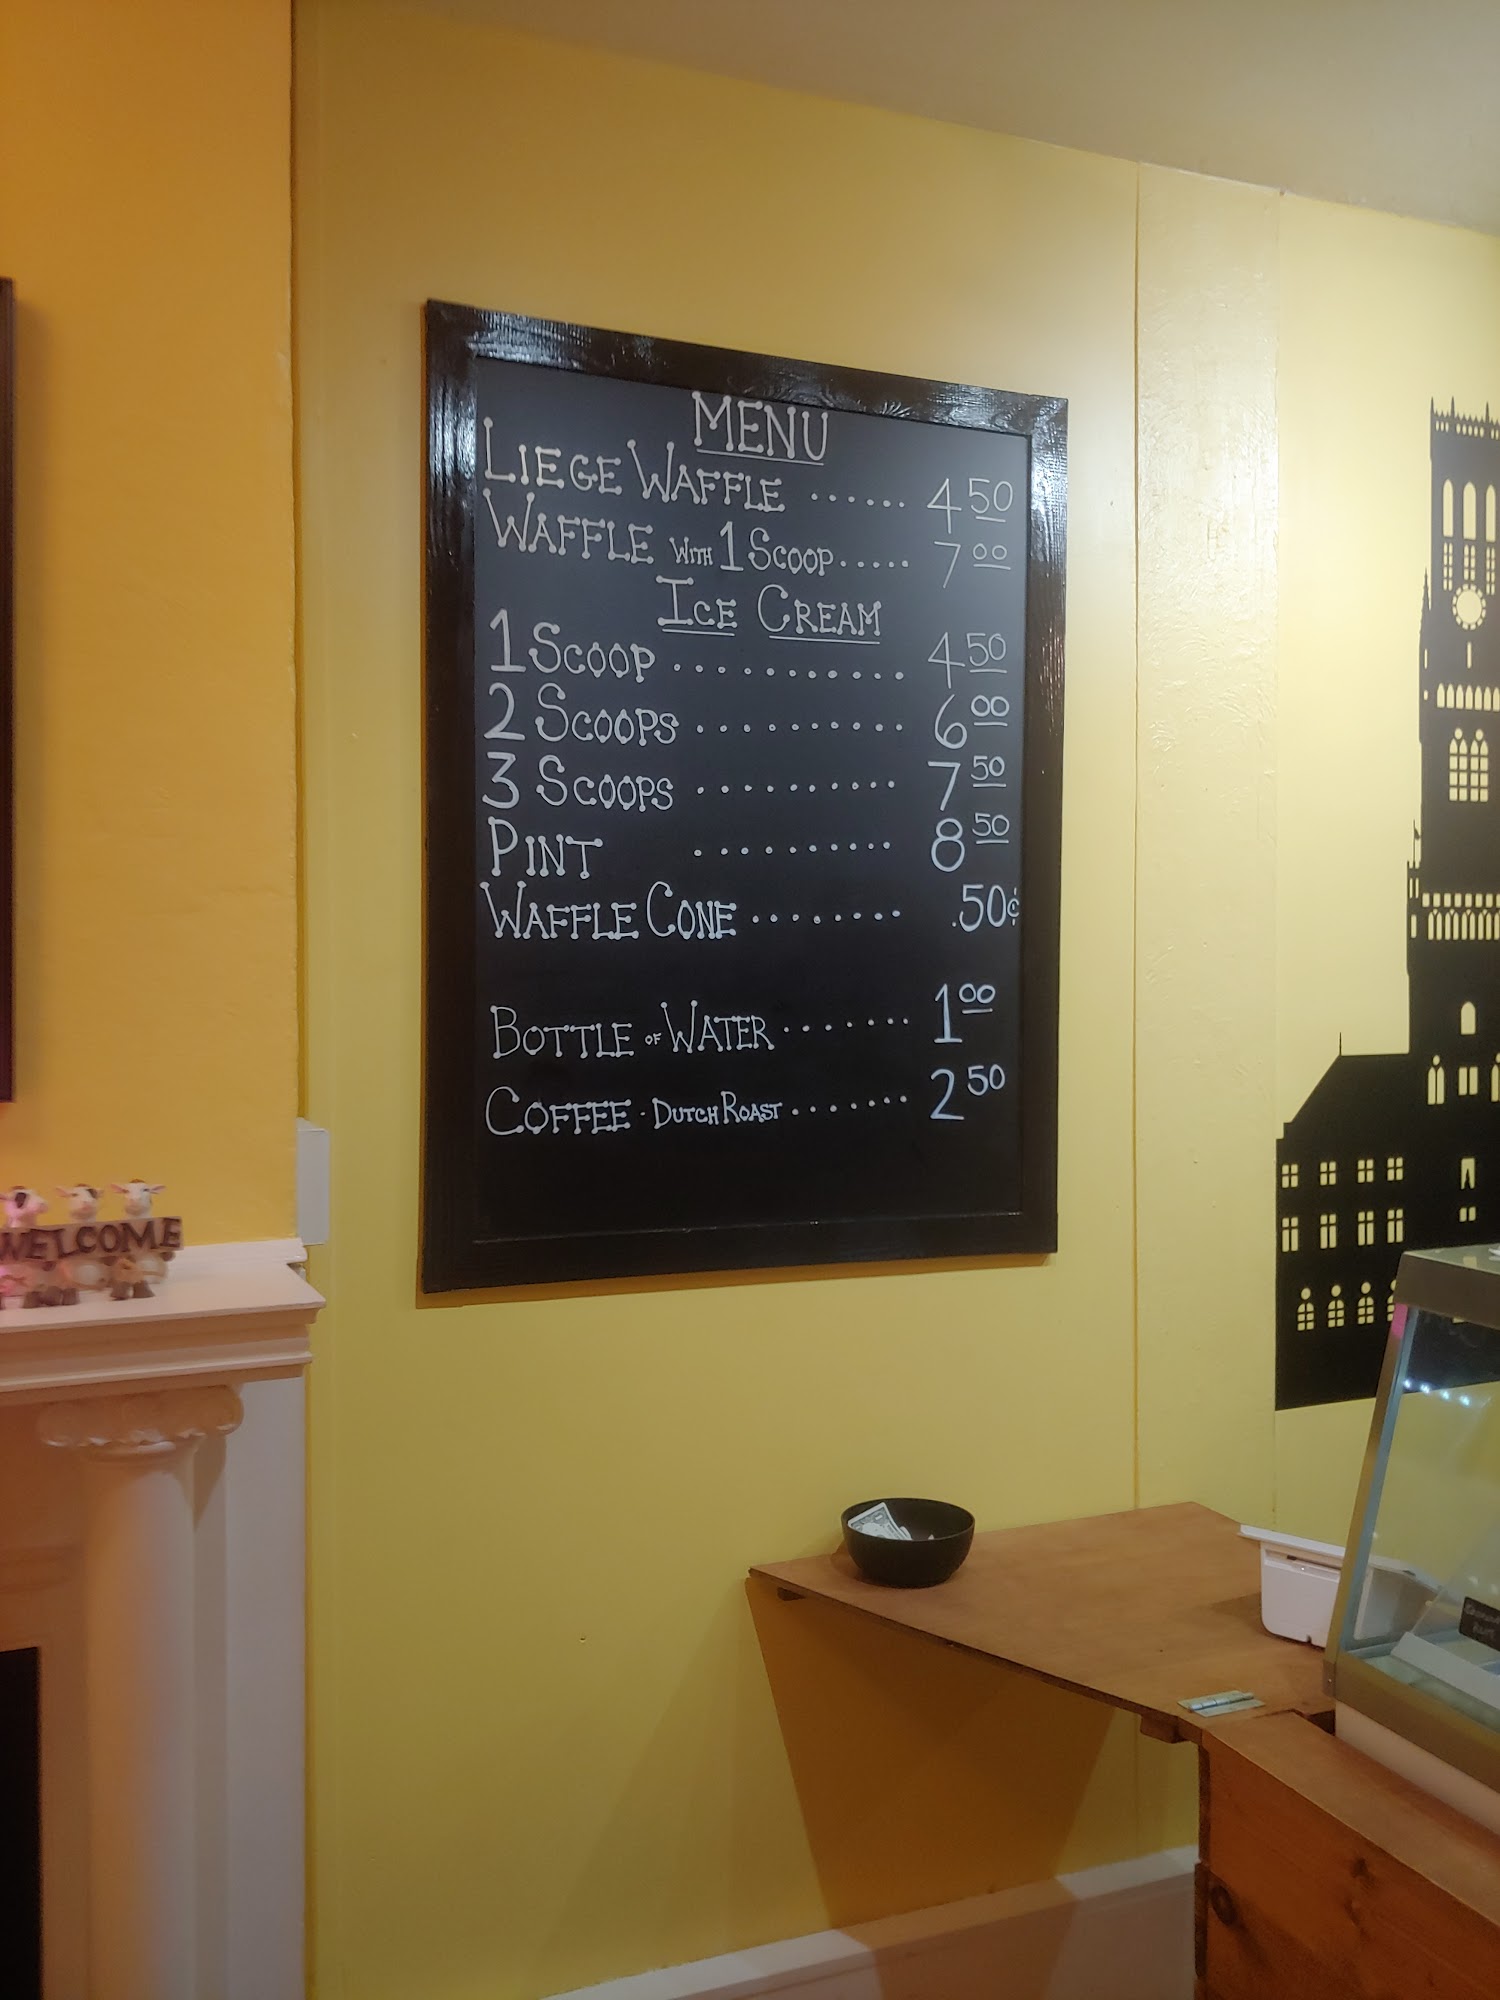 MENU
LIEGE WAFFLE ...... 4 50
WAFFLE WITH 1 SCOOP ..... 7 00
ICE CREAM
1 SCOOP ........... 4 50
2 SCOOPS .......... 6 00
3 SCOOPS .......... 7 50
PINT .......... 8 50
WAFFLE CONE ........ .50¢
BOTTLE OF WATER ....... 1 00
COFFEE - DUTCH ROAST ....... 2 50
WELCOME